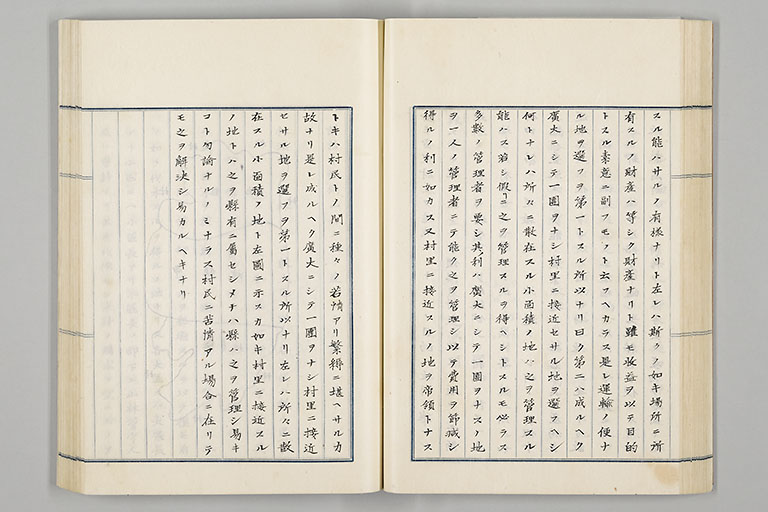 スル能ハサルノ有樣ナリト左レハ斯クノ如キ場所ニ所
有スルノ財產ハ等シク財產ナリト雖モ收益ヲ以テ目的
トスル素意ニ副フモノト云フヘカラス是レ運輸ノ便ナ
ル地ヲ選フヲ第一トスル所以ナリ曰ク第二ハ成ルヘク
廣大ニシテ一團ヲナシ村里ニ接近セサル地ヲ選フヘシ
何トナレハ所々ニ散在スル小面積ノ地ハ之ヲ管理スル
能ハス若シ假リニ之ヲ管理スルヲ得ヘシトスルモ必ラス
多數ノ管理者ヲ要シ其利ハ廣大ニシテ一團ヲナス地
ヲ一人ノ管理者ニテ能ク之ヲ管理シ以テ費用ヲ節減シ
得ルノ利ニ如カス又村里ニ接近スルノ地ヲ帶領トナス
トキハ村民トノ間ニ種々ノ苦情アリ繁得ニ堪ヘサルカ
故ナリ是レ成ルヘク廣大ニシテ一團ヲナシ村里ニ接近
セサル地ヲ選フヲ第一トスル所以ナリ左レハ所々ニ散
在スル小面積ノ地ト左圖ニ示スカ如キ村里ニ接近スル
ノ地トハ之ヲ縣有ニ屬セシメナハ縣ハ之ヲ管理シ易キ
コト勿論ナルノミナラス村民ニ苦情アル場合ニ在リテ
モ之ヲ解決シ易カルヘキナリ